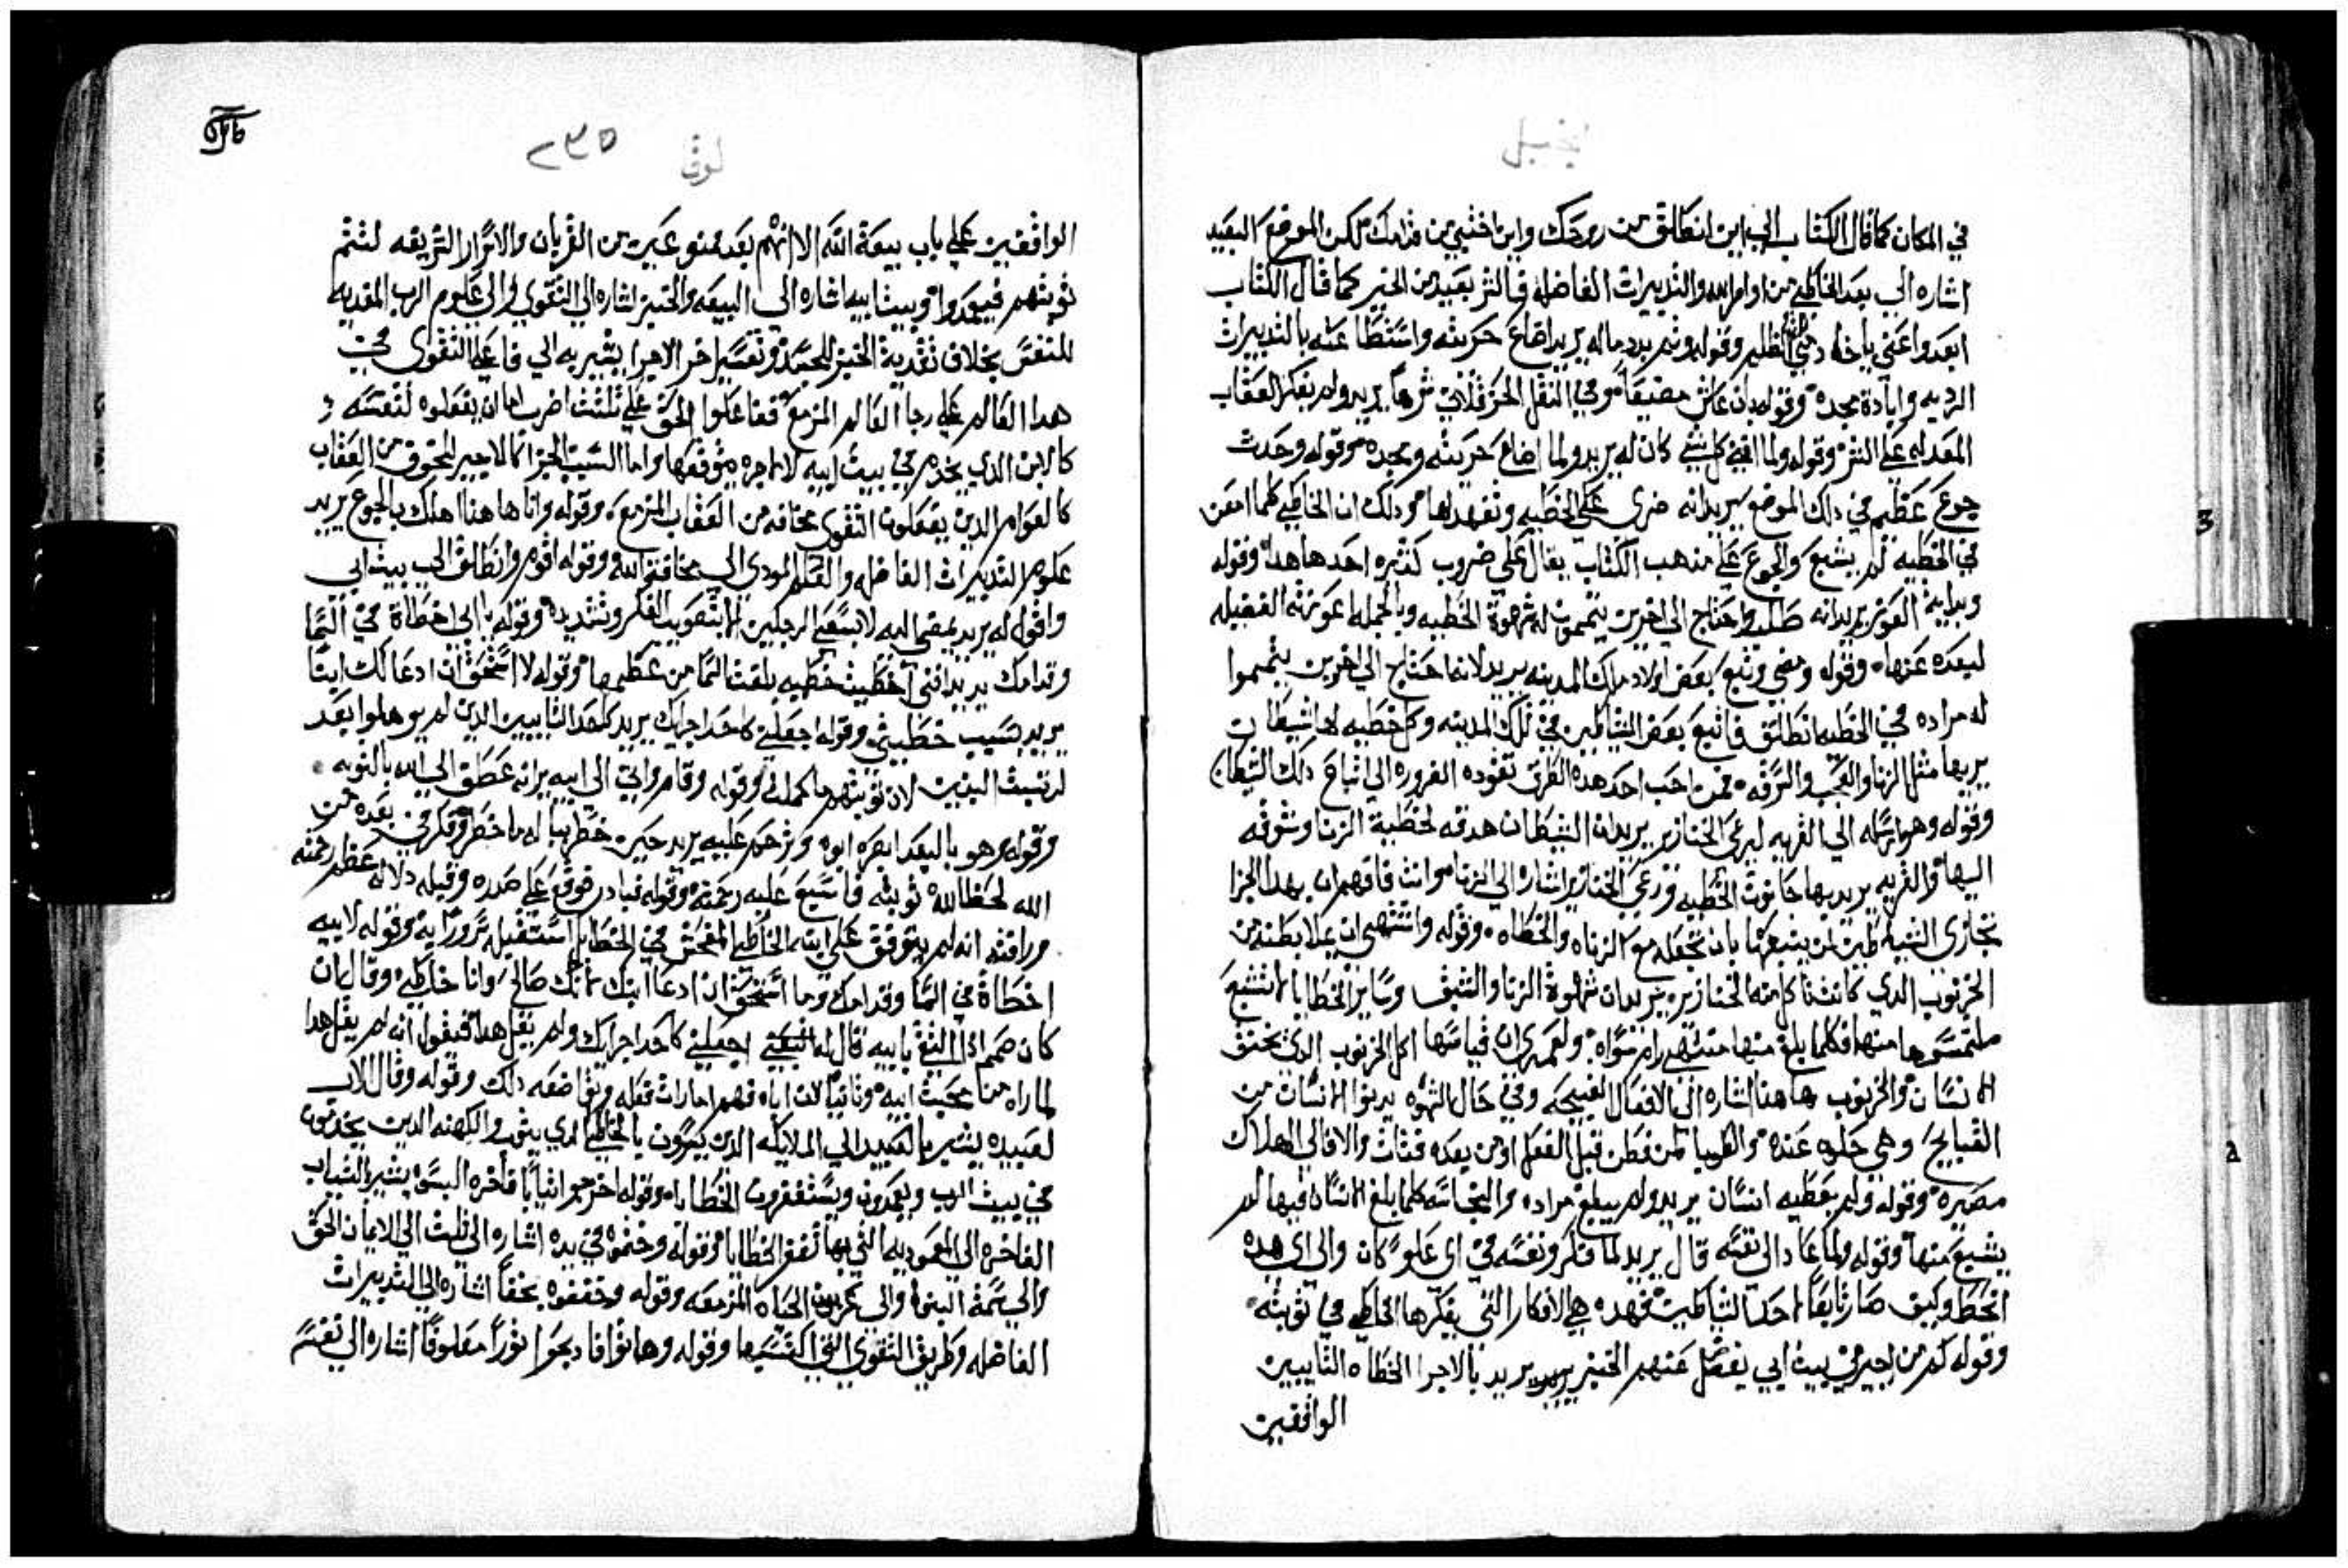 انجيل
في المكان كما قال الكتاب الي اين انطلق من روحك واين اختبي من قدامك لكن الموضع البعيد
اشاره الي بعد الخاطي من اوامر الله والتدبيرات الفاضله فالشر بعيد من الخير كما قال الكتاب
ابعدوا عني يا فعلة الظلم وقوله وثم بدد ماله يريد اضاع حريته واستطا عته بالتدبيرات
الرديه وابادة مجده وقوله بان عاش مضيقاً وفي النقل الحرقلاني شرهاً يريد ولم يفكر العقاب
المعد له علي الشر وقوله ولما افني كل شي كان له يريد ولما اضاع حريته ومجده وقوله وحدث
جوع عظيم في دلك الموضع يريد انه ضري علي الخطيه وتعهد لها ودلك ان الخاطي كلما امعن
في الخطيه لم يشبع والجوع علي مدهب الكتاب يقال علي ضروب كثيره احدها هدا وقوله
وبداية العوز يريد انه طلب واحتاج الي اخرين يتممون له شهوة الخطيه وبالجمله اعوزته الفضيله
لبعده عنها وقوله ومضي وتبع بعض اولاد ملك المدينه يريد لانه احتاج الي اخرين يتمموا
له مراده في الخطيه انطلق فاتبع بعض الشياطين في تلك المدينه وكل خطيه لها شيطان
يربيها مثل الزنا والعجب والسرقه فمن احب احد هده الطرق تقوده الضروره الي اتباع دلك الشيطان
وقوله وهو ارسله الي القريه ليرعي الخنازير يريد ان الشيطان هدفه لخطية الزنا وشوقه
اليها والقريه يريد بها حانوت الخطيه ورعي الخنازير اشاره الي الزناه وانت فافهم ان بهدا الجزا
تجازي الشياطين لمن يتبعها بان تجعله مع الزناه والخطاه وقوله واشتهي ان يملا بطنه من
الخرنوب الدي كانت تاكله الخنازير يريد ان شهوة الزنا والشبق وساير الخطايا لا تشبع
ملتمسوها منها فكلما بلغ منها مشتهي رام سواه ولعمري ان قياسها اكل الخرنوب الدي يخنق
الانسان والخرنوب هاهنا اشاره الي الافعال القبيحه وفي حال الشهوه يدنوا الانسان من
القبايح وهي حلوه عنده والطوبا لمن فطن قبل الفعل او من بعده فتاب والا فالي الهلاك
مصيره وقوله ولم يعطيه انسان يريد ولم يبلغ مراده والنجاسه كلما بلغ الانسان فيها لم
يشبع منها وقوله ولما عاد الي نفسه قال يريد لما فكر ونفسه في اي علو كان والي اي هده
انحط وكيف صار تابعاً لاحد الشياطين فهده هي الافكار التي يفكرها الخاطي في توبته
وقوله كم من اجير في بيت ابي يفضل عنهم الخبز يريد بالاجرا الخطاه التايبين
الواقفين
لوقا
٢٣٥
الواقفين علي باب بيعة الله الا انهم بعد ممنوعين من القربان والاسرار الشريفه لتتم
توبتهم فيعمدوا وبيت ابيه اشاره الي البيعه والخبز اشاره الي التقوي والي علوم الرب المغديه
للنفس بخلاف تغدية الخبز للجسد وتفسير اخر الاجرا يشير به الي فاعلي التقوي في
هدا العالم علي رجا العالم المزمع ففاعلوا الحق علي تلتت اضرب اما ان يفعلوه لنفسه
كالابن الدي يخدم في بيت ابيه لا لاجره يتوقعها واما السبب الجزا كالاجير المخوف من العقاب
كالعوام الدين يفعلون التقوي مخافه من العقاب المزمع وقوله وانا هاهنا اهلك بالجوع يريد
علوم التدبيرات الفاضله والعلم المودي الي مخافة الله وقوله اقوم وانطلق الي بيت ابي
واقول له يريد يمضي اليه لا بسعي الرجلين لا بتصويب الفكر وتشديده وقوله يا ابي اخطاة في السما
وقدامك يريد انني اخطيت خطيه بلغت السما من عظمها وقوله لا استحق ان ادعا لك ابناً
يريد بسبب خطيتي وقوله اجعلني كاحد اجراك يريد كاحد التايبين الدين لم يوهلوا بعد
لرتبت البنين لان توبتهم ما كملت وقوله وقام واتي الي ابيه يريد انه عطف الي الله بالتوبه
وقوله وهو بالبعد ابصره ابوه وترحم عليه يريد حين خطر بباله ما خطر وفكر في بعده من
الله لحظ الله توبته فاسبغ عليه رحمته وقوله فبادر فوقع علي صدره وقبله دلاله عظم رحمته
ورافته انه لم يتوقف علي ابنه الخاطي المفحش في الخطا بل استقبله سروراً به وقوله لابيه
اخطاة في السما وقدامك وما استحق ان ادعا ابنك لانك صالح وانا خاطي وقال ان
كان ضمر ادا التقي بابيه قال له اجعلني كاحد اجراك ولم يقل هدا فنقول انه لم يقل هدا
لما راه من محبت ابيه وثانياً لان اباه فهم امارات فعله وتواضعه دلك وقوله وقال الاب
لعبيده يشير بالعبيد الي الملايكه الدين يسرون بالخاطي الدي يتوب والكهنه الدين يخدمون
في بيت الرب ويعمدون ويستغفرون الخطاه وقوله اخرجوا ثياباً فاخره البسوه يشير بالثياب
الفاخره الي المعموديه التي بها تغفر الخطايا وقوله وختموه في يده اشاره الي تلت الي الامان الحق
والي سمة البنوه والي عربون الحياه المزمعه وقوله وخففوه بخفاً اشاره الي التدبيرات
الفاضله وطريق التقوي التي اكتسبها وقوله وهاتوا فادبحوا ثوراً معلوفاً اشاره الي نفس